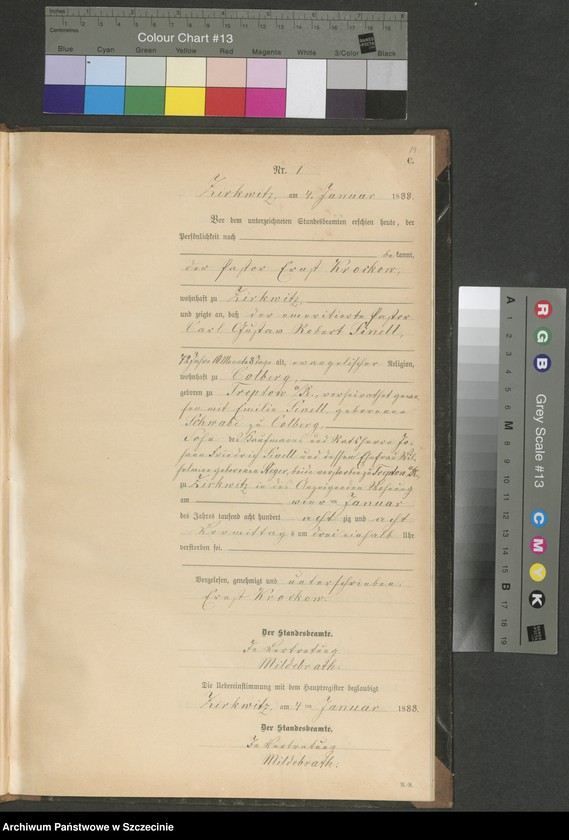 Inches
Centimetres
Colour Chart #13
Blue Cyan Green Yellow Red Magenta White 3/Color Black
C.
Nr. 1
Zirkwitz, am 4. Januar 1888.
Vor dem unterzeichneten Standesbeamten erschien heute, der
Persönlichkeit nach
bekannt,
der Pastor Ernst Krockow,
wohnhaft zu Zirkwitz,
und zeigte an, daß der emeritierte Pastor
Carl Gustav Robert Sinell,
72 Jahre alt, evangelischer Religion,
wohnhaft zu Colberg,
geboren zu Treptow a/R., verheirathet gewe
sen mit Emilie Sinell geborenen
Schwabe zu Colberg,
Sohn des Kaufmanns und Rathsherrn Jo
hann Friedrich Sinell und dessen Ehefrau
geborenen beide verstorben zu Treptow a/R.,
zu Zirkwitz in des Anzeigenden Wohnung
am vierten Januar
des Jahres tausend acht hundert achtzig und acht
Vormittags um drei einhalb Uhr
verstorben sei.
Vorgelesen, genehmigt und unterschrieben.
Ernst Krockow.
Der Standesbeamte.
In Vertretung
Mildebrath.
Die Uebereinstimmung mit dem Hauptregister beglaubigt
Zirkwitz, am 4ten Januar 1888.
Der Standesbeamte.
In Vertretung
Mildebrath.
Grey Scale #13
R
G
B
C
M
Y
K
A 1 2 3 4 5 6 M 8 9 10 11 12 13 14 15 B 17 18 19
Archiwum Państwowe w Szczecinie